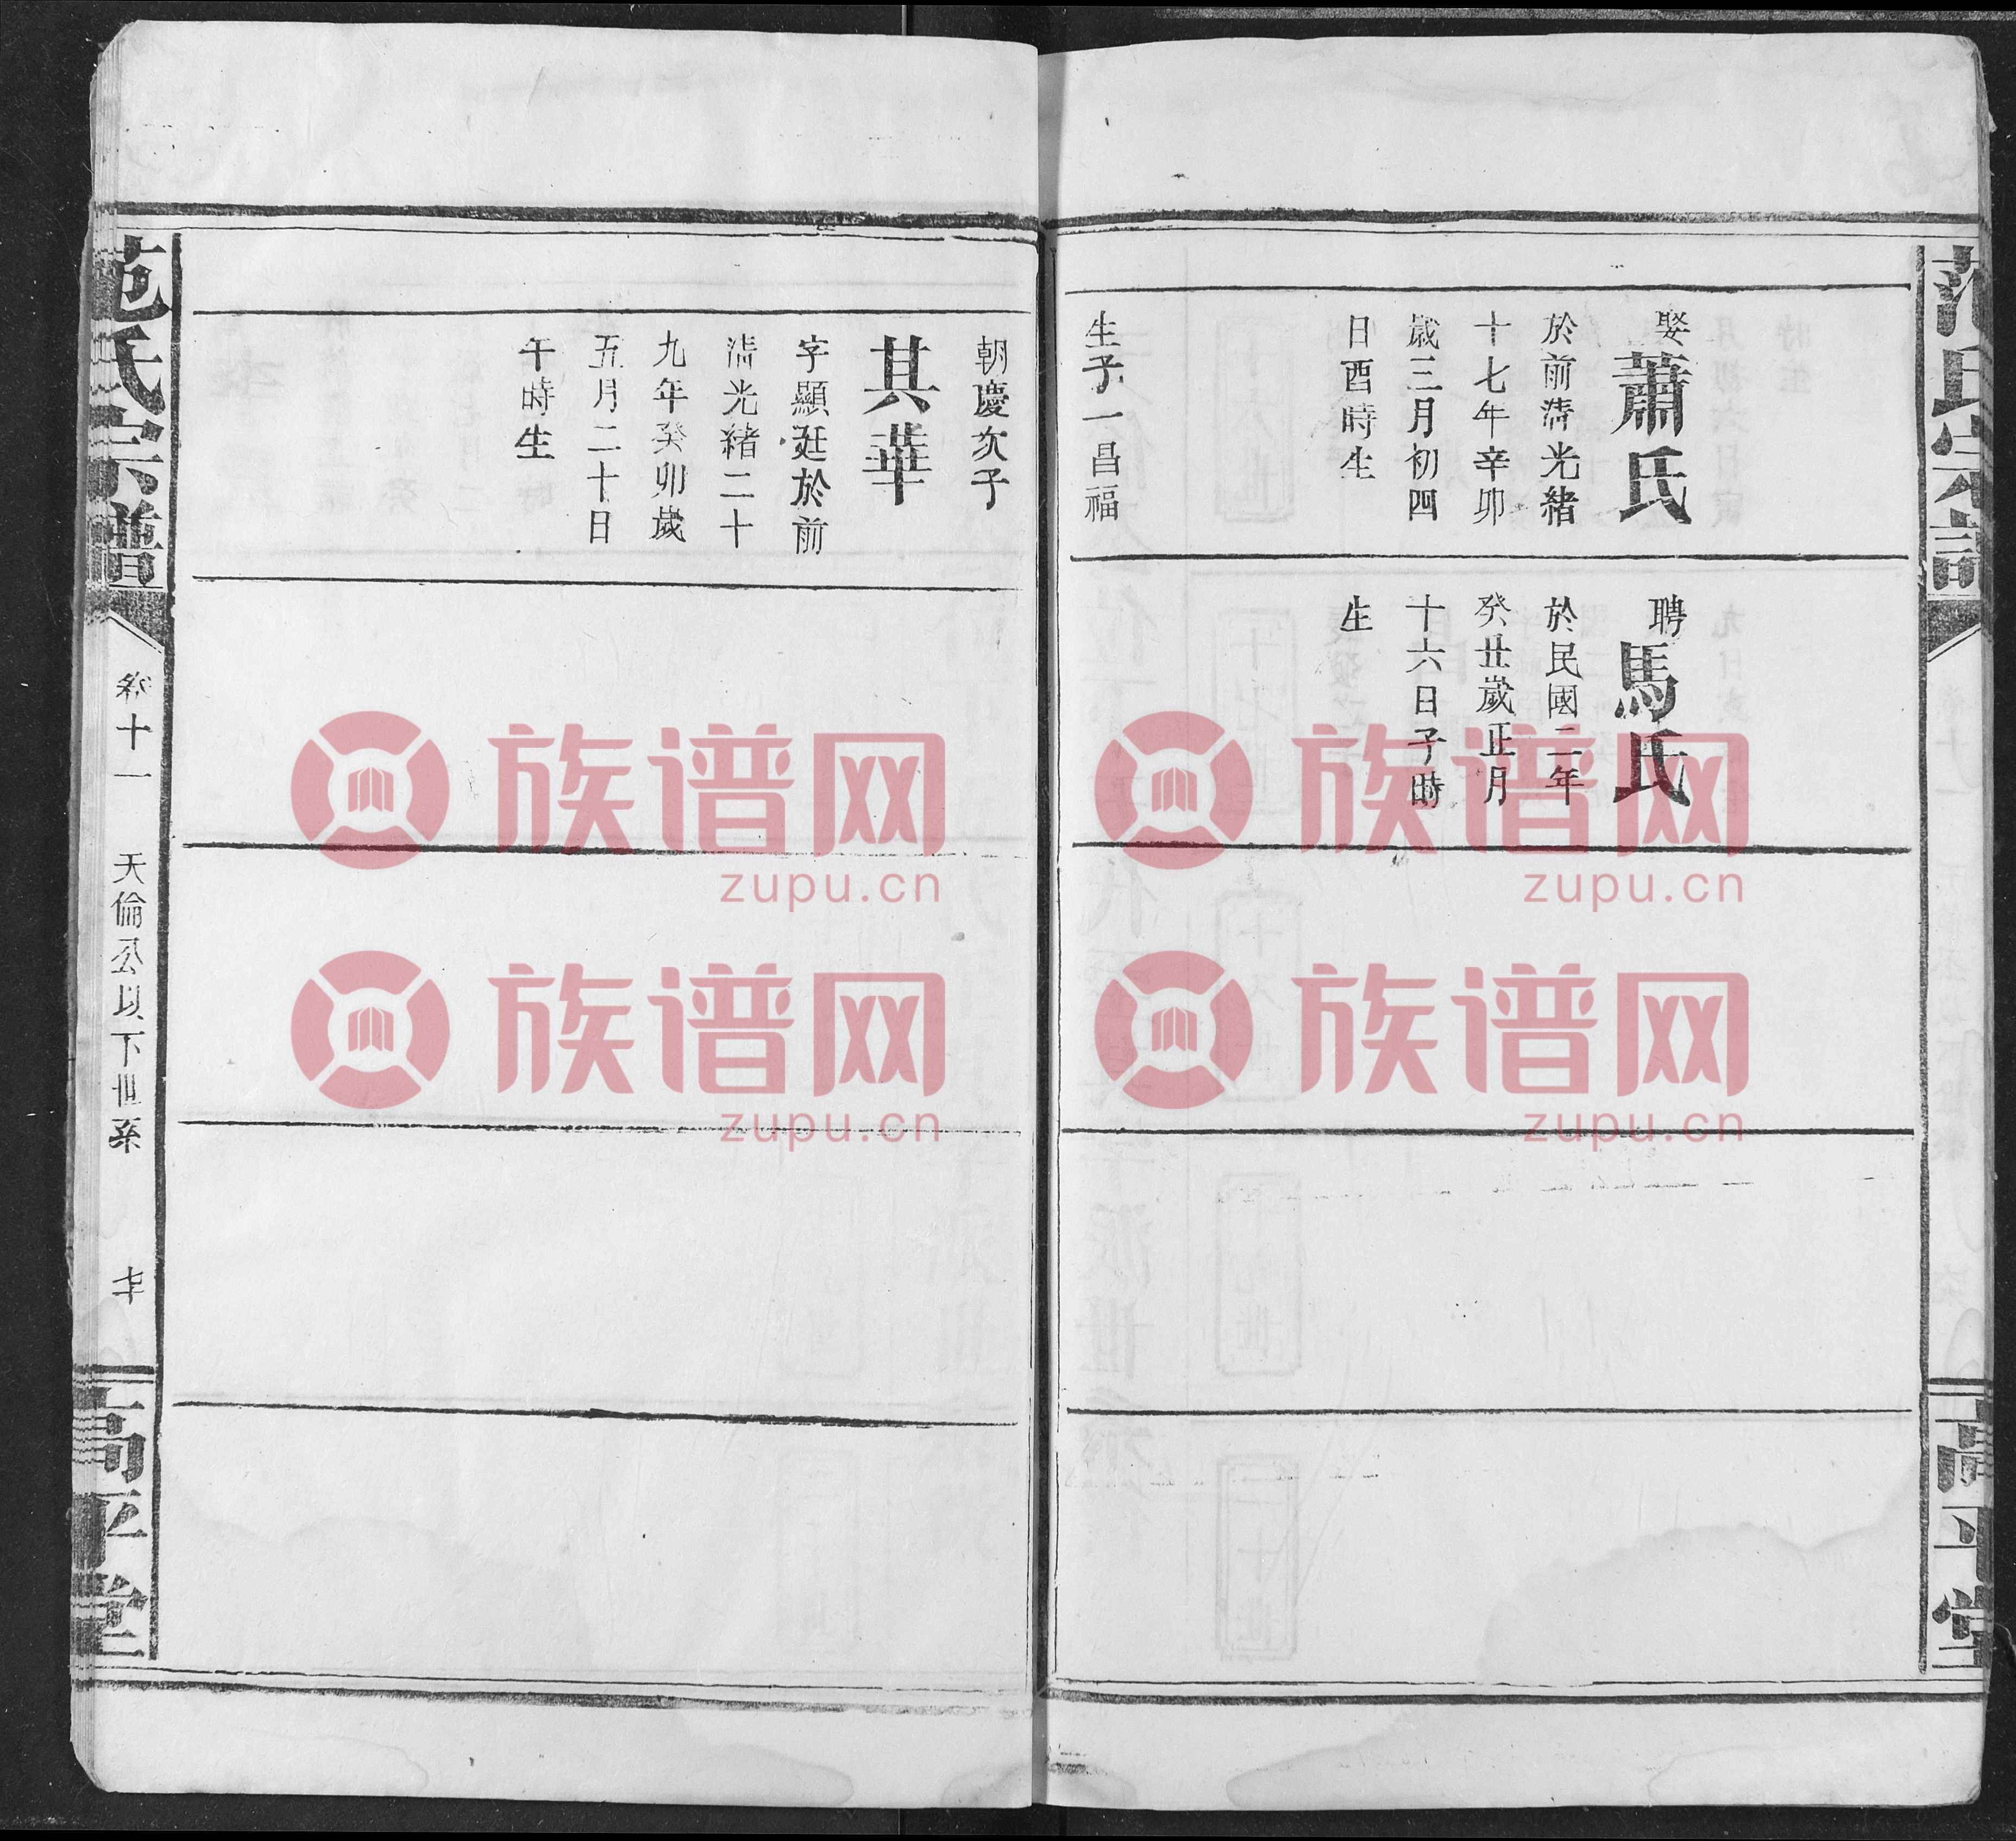 范氏宗譜
高平堂
娶
蕭氏
於前淸光緒
十七年辛卯
歲三月初四
日酉時生
生子一昌福
聘
馬氏
於民國二年
癸丑歲正月
十六日子時
生
朝慶次子
其華
字顯廷於前
淸光緒二十
九年癸卯歲
五月二十日
午時生
范氏宗譜
卷十一
天倫公以下世系
高平堂
族谱网
zupu.cn
族谱网
zupu.cn
族谱网
zupu.cn
族谱网
zupu.cn